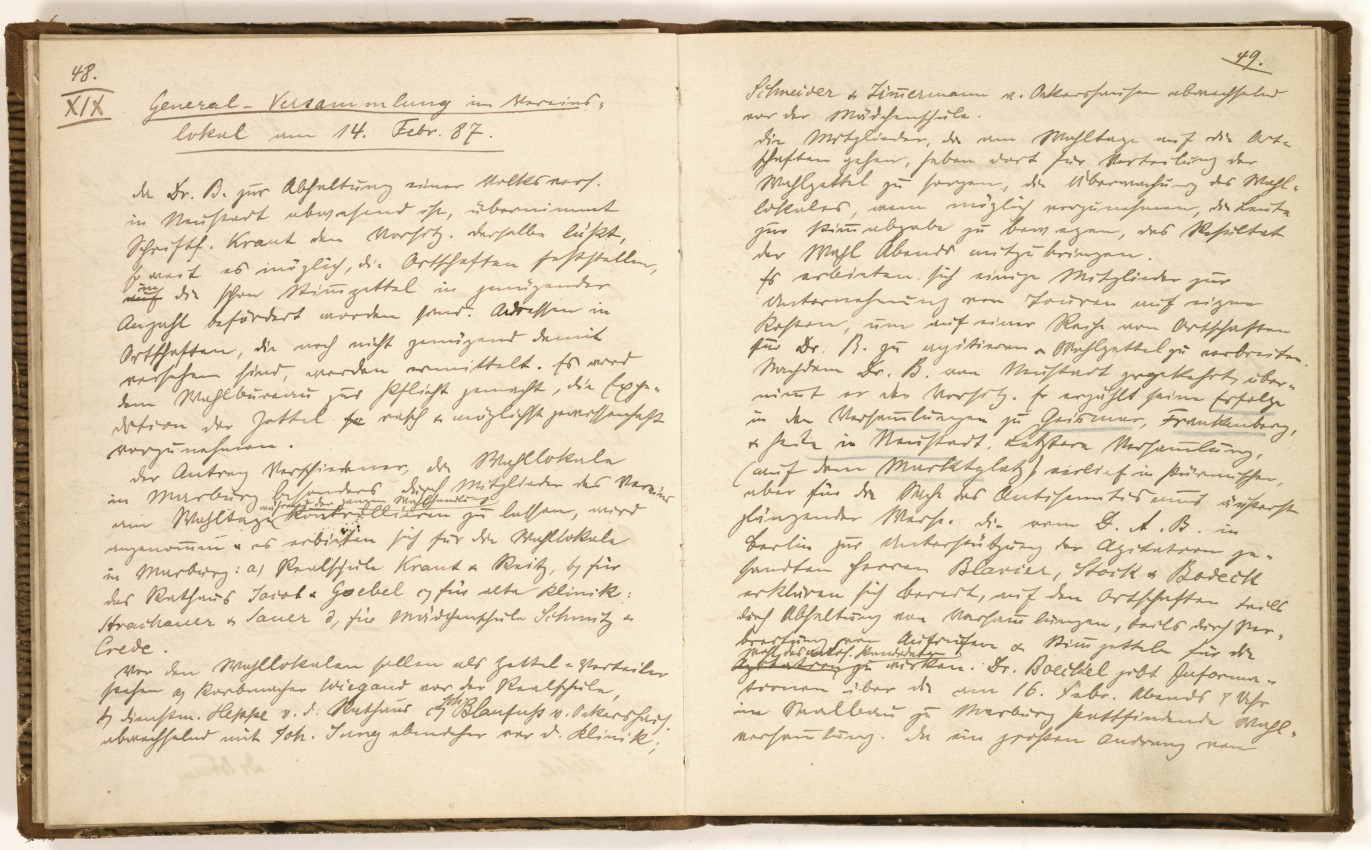 48.
XIX
General-Versammlung im Vereins-
lokal am 14. Febr. 87.
Da Dr. B. zur Abhaltung einer Volksvers.
in Neustadt abwesend ist, übernimmt
Schriftf. Kraut den Vorsitz. Derselbe läßt,
soweit es möglich, die Ortschaften feststellen,
in die schon Stimzettel in genügender
Anzahl befördert worden sind. Adressen in
Ortschaften, die noch nicht genügend damit
versehen sind, werden ermittelt. Es wird
dem Wahlbureau zur Pflicht gemacht, die Expe-
dition der Zettel rasch & möglichst gewissenhaft
vorzunehmen.
Der Antrag Verschiedener, die Wahllokale
in Marburg besonders durch Mitglieder des Vereins
am Wahltage während der ganzen Wahlhandlung kontrollieren zu lassen, wird
angenommen & es erbieten sich für die Wahllokale
in Marburg: a) Realschule Kraut & Reitz, b) für
das Rathaus Jacob & Goebel c) für alte Klinik:
Strachauer & Sauer d) für Mädchenschule Schmitz &
Crede.
Vor den Wahllokalen sollen als Zettel-Verteiler
stehen a) Korbmacher Wiegand vor der Realschule,
b) Dienstm. Heppe v. d. Rathaus c) Joh. Blaufuß v. Ockershaus.
abwechselnd mit Joh. Jung ebendaher vor d. Klinik,
49.
Schneider & Zimmermann v. Ockershausen abwechselnd
vor der Mädchenschule.
Die Mitglieder, die am Wahltage auf die Ort-
schaften gehen, haben dort für Verteilung der
Wahlzettel zu sorgen, die Überwachung des Wahl-
lokales, wenn möglich vorzunehmen, die Leute
zur Stimabgabe zu bewegen, das Resultat
der Wahl Abends mitzubringen.
Es erbieten sich einige Mitglieder zur
Unternehmung von Touren auf eigne
Kosten, um auf einer Reihe von Ortschaften
für Dr. B. zu agitieren & Wahlzettel zu verbreiten.
Nachdem Dr. B. von Neustadt zurückkehrt, über-
nimmt er den Vorsitz. Er erzählt seine Erfolge
in den Versammlungen zu Geismar, Frankenberg,
& heute in Neustadt. Letztere Versammlung,
(auf dem Marktplatz) verlief in stürmischer,
aber für die Sache des Antisemitismus äußerst
glänzender Weise. Die vom D. A. B. in
Berlin zur Unterstützung der Agitation ge-
sandten Herren Blavier, Stock & Bodeck
erklären sich bereit, auf den Ortschaften teils
durch Abhaltung von Versammlungen, teils durch Ver-
breitung von Aufrufen & Stimzetteln für die
Wahl des antis. Kandidaten
Agitation zu wirken. Dr. Boeckel gibt Informa-
tionen über die am 16. Febr. Abends 8 Uhr
im Saalbau zu Marburg stattfindende Wahl-
versammlung. Da ein großer Andrang von